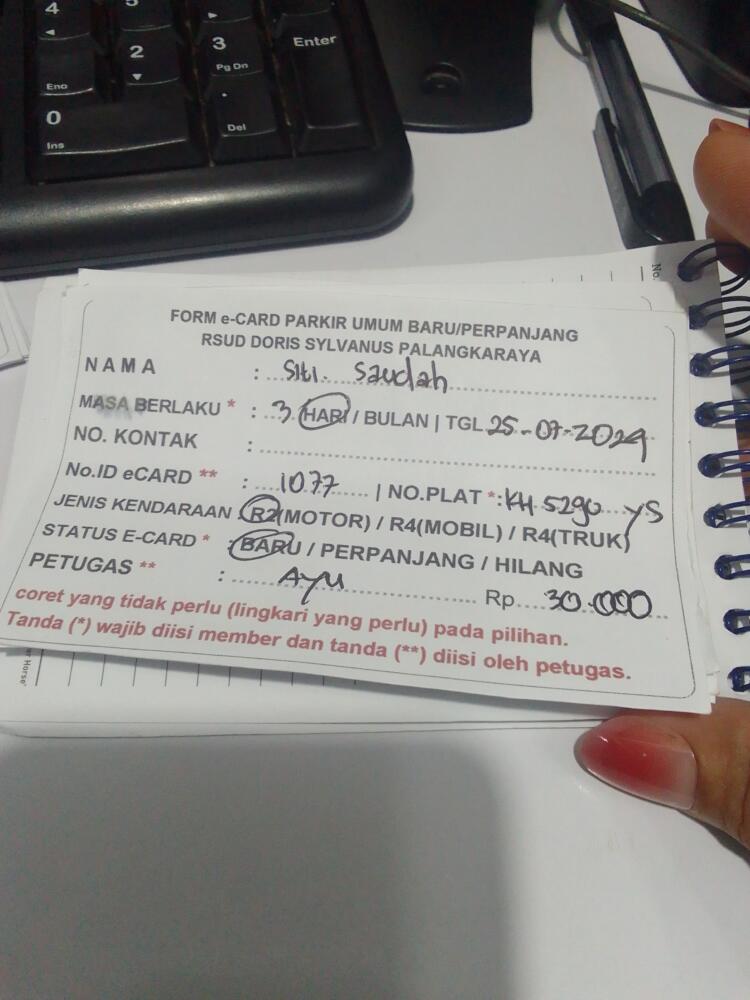 4
5
2
3
Enter
Pg Dn
Enc
0
.
Ins
Del
No.
FORM e-CARD PARKIR UMUM BARU/PERPANJANG
RSUD DORIS SYLVANUS PALANGKARAYA
NAMA : Siti. Saudah
MASA BERLAKU * : 3 HARI / BULAN | TGL 25-07-2024
NO. KONTAK :
No.ID eCARD ** : 1077 | NO.PLAT *: KH 5290 YS
JENIS KENDARAAN : R2(MOTOR) / R4(MOBIL) / R4(TRUK)
STATUS E-CARD * : BARU / PERPANJANG / HILANG
PETUGAS ** : Ayu Rp 30.000
coret yang tidak perlu (lingkari yang perlu) pada pilihan.
Tanda (*) wajib diisi member dan tanda (**) diisi oleh petugas.